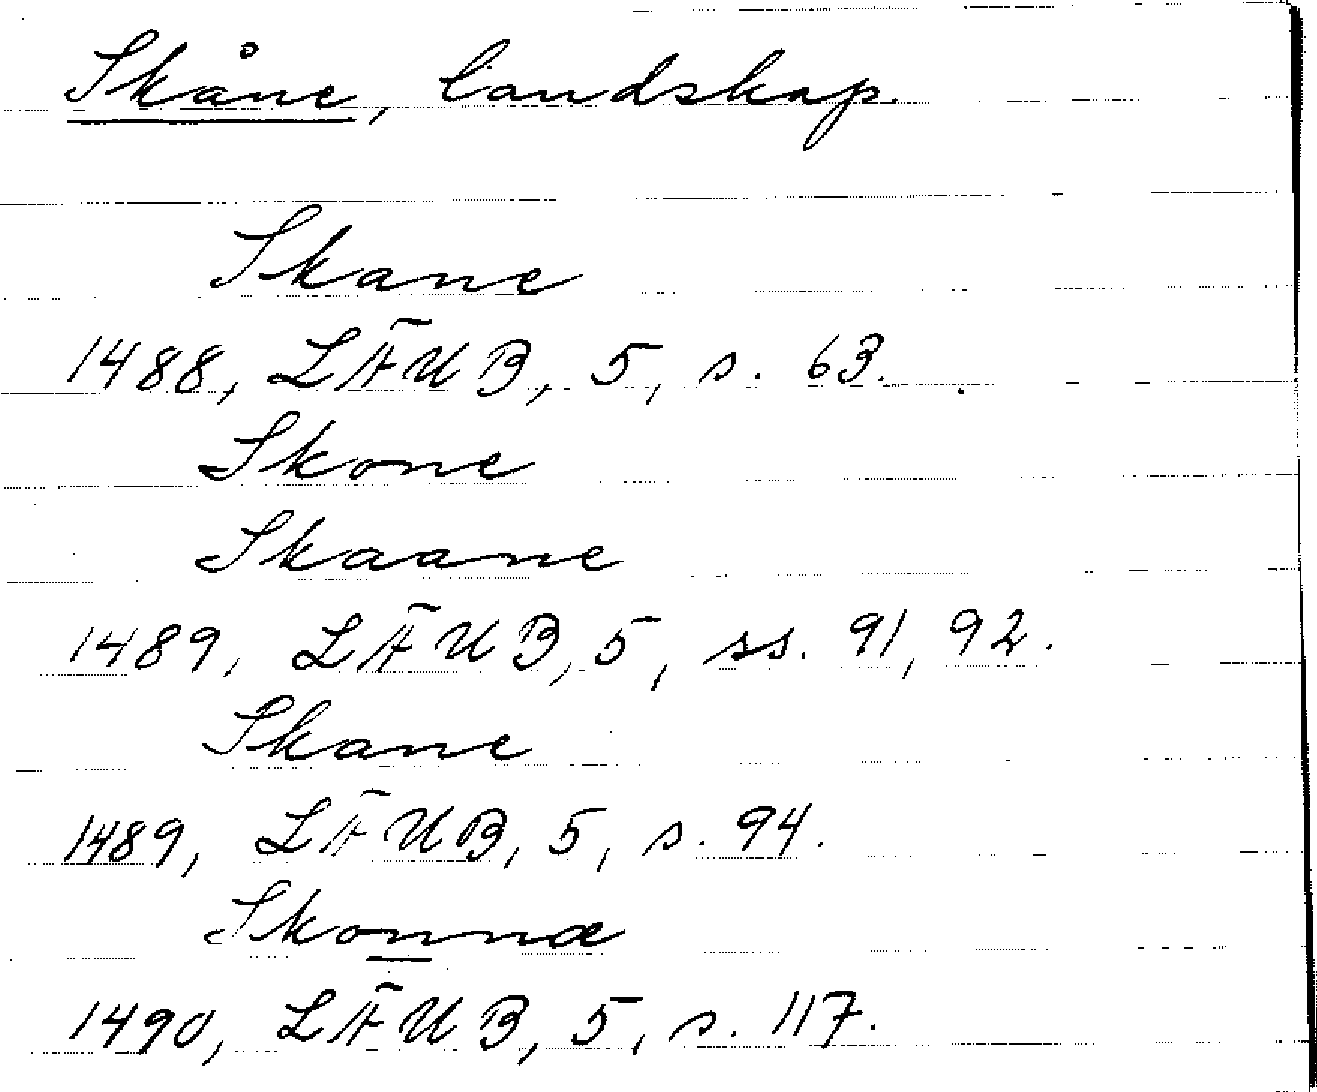 Skåne, landskap.
Skane
1488, LÄUB, 5, s. 63.
Skone
Skaane
1489, LÄUB, 5, ss. 91, 92.
Skane
1489, LÄUB, 5, s. 94.
Skonnæ
1490, LÄUB, 5, s. 117.